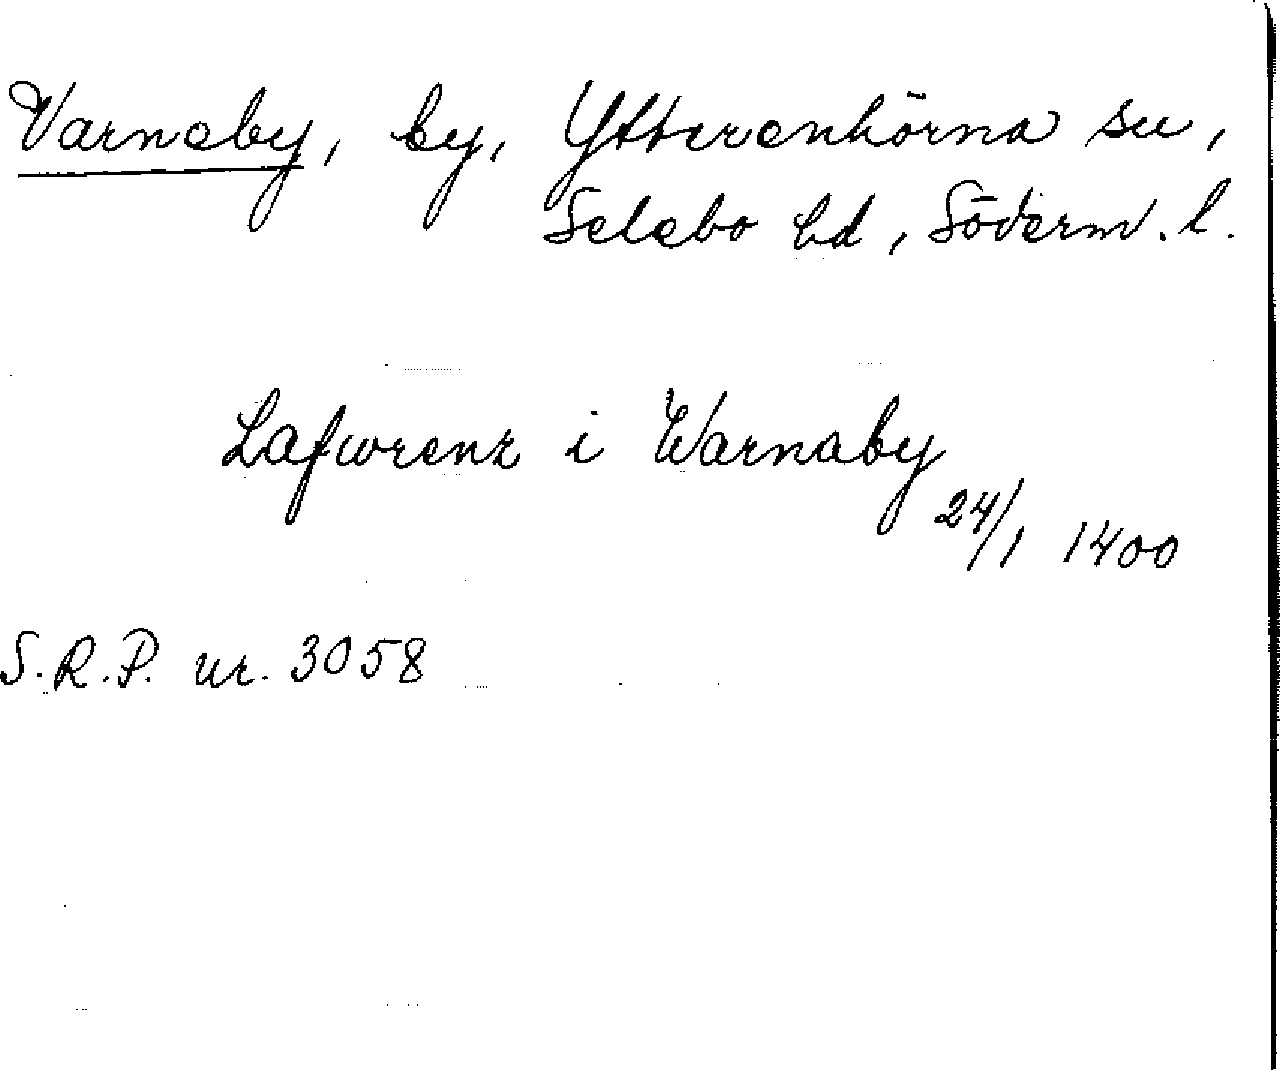 Varnaby, by, Ytterenhörna sn,
Selebo hd, Söderm. l.
Lafwrenz i Warnaby
24/1 1400
S.R.P. nr. 3058